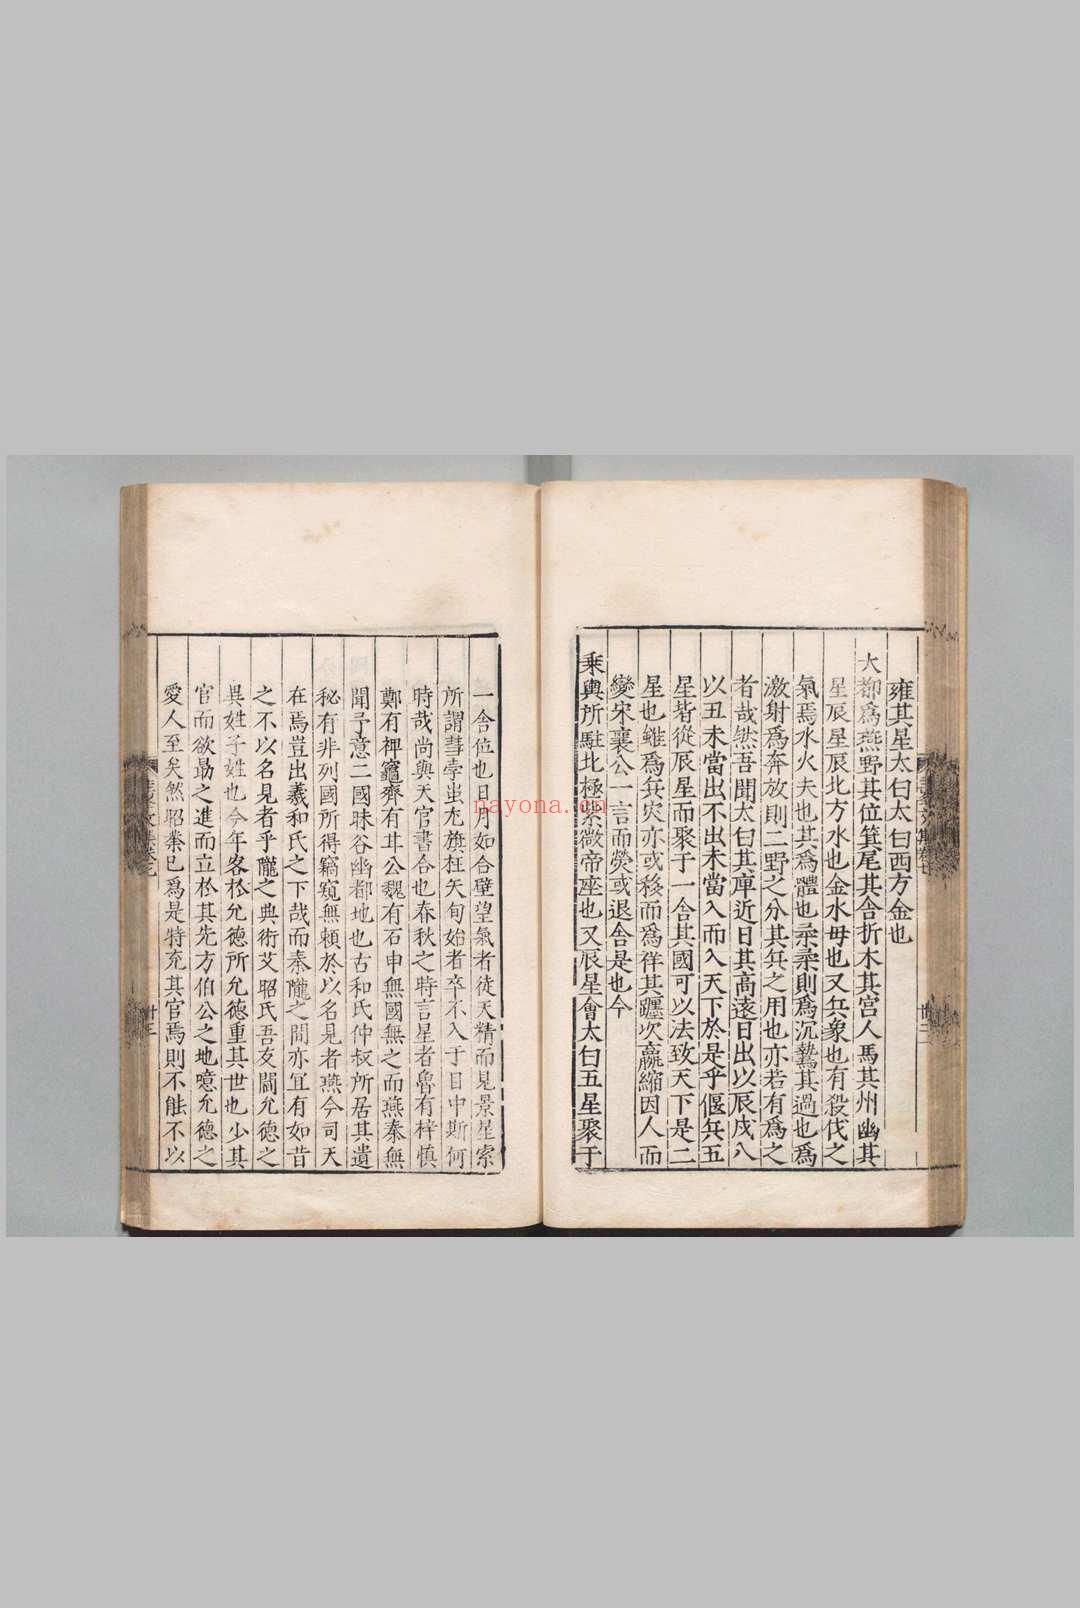 雍其星太白太白西方金也
大都爲燕野其位箕尾其舍析木其宮人馬其州幽其
星辰星辰北方水也金水毋也又兵象也有殺伐之
氣焉水火夫也其爲體也柔柔則爲沉鷙其過也爲
激射爲奔放則二野之分其兵之用也亦若有爲之
者哉然吾聞太白其庫近日其高遠日出以辰戌入
以丑未當出不出未當入而入天下於是乎偃兵五
星皆從辰星而聚于一舍其國可以法致天下是二
星也雖爲兵灾亦或移而爲祥其躔次贏縮因人而
變宋襄公一言而熒或退舍是也今
乘輿所駐北極紫微帝座也又辰星會太白五星聚于
一舍位也日月如合璧望氣者徒天精而見景星索
所謂彗孛蚩尤旗枉矢旬始者卒不入于目中斯何
時哉尚與天官書合也春秋之時言星者魯有梓慎
鄭有裨竈齊有甘公魏有石申無國無之而燕秦無
聞予意二國昧谷幽都地也古和氏仲叔所居其遺
秘有非列國所得竊窺無頼於以名見者燕今司天
在焉豈出羲和氏之下哉而秦隴之間亦冝有如昔
之不以名見者乎隴之典術艾昭氏吾友閻允德之
異姓子姓也今年客松允德所允德重其世也少其
官而欲勗之進而立松其先方伯公之地噫允德之
愛人至矣然昭業已爲是特充其官焉則不能不以
卅二
卅三
nayona.cn